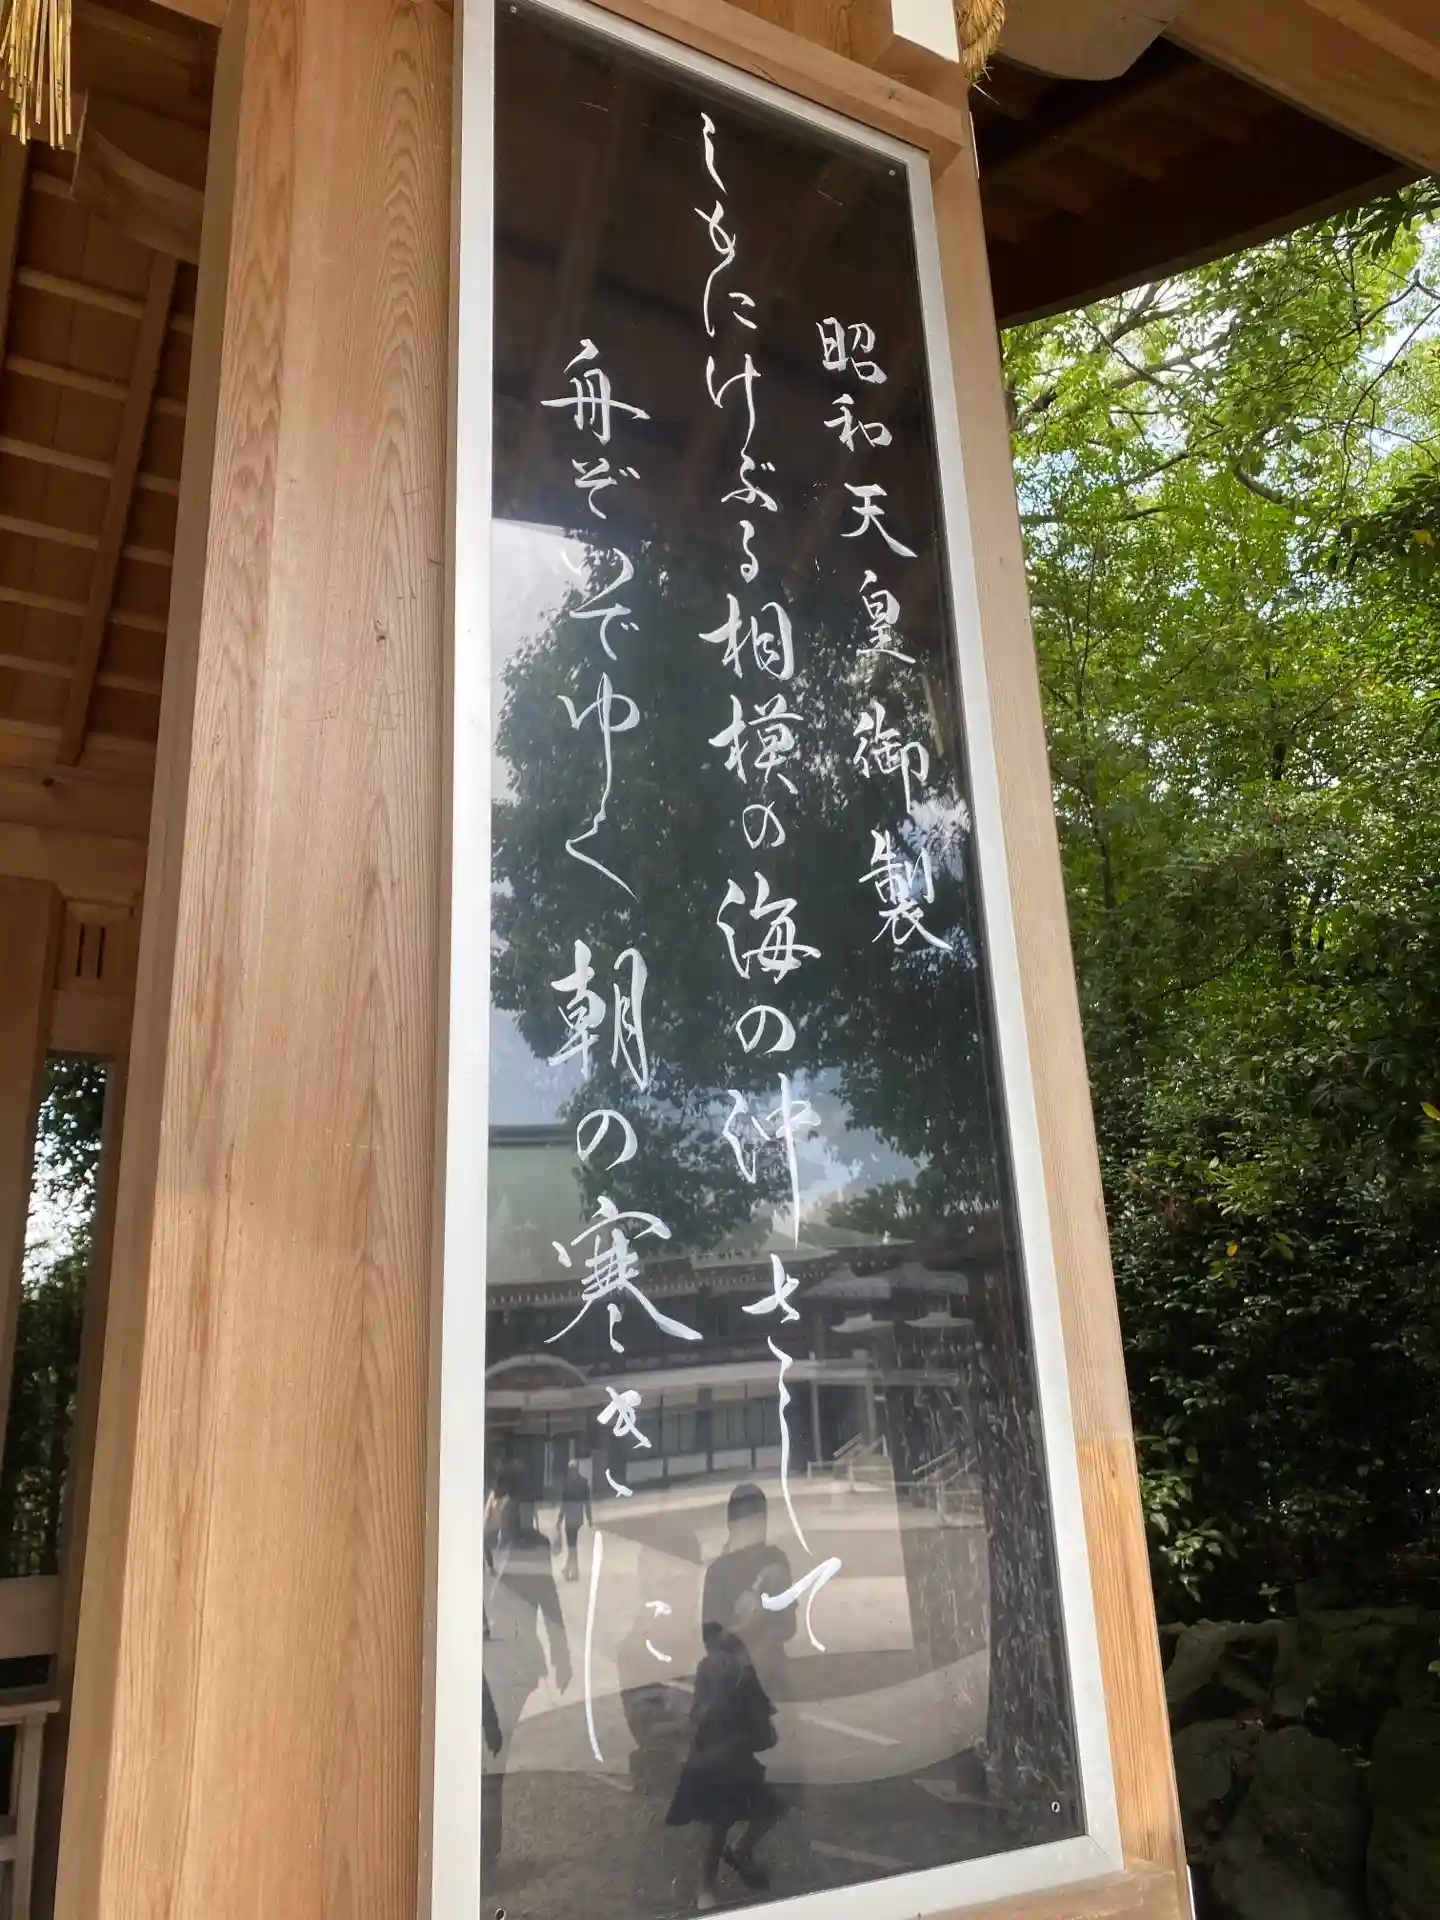 昭和天皇御製
しもにけぶる相模の海の沖さして
舟ぞいでゆく朝の寒きに